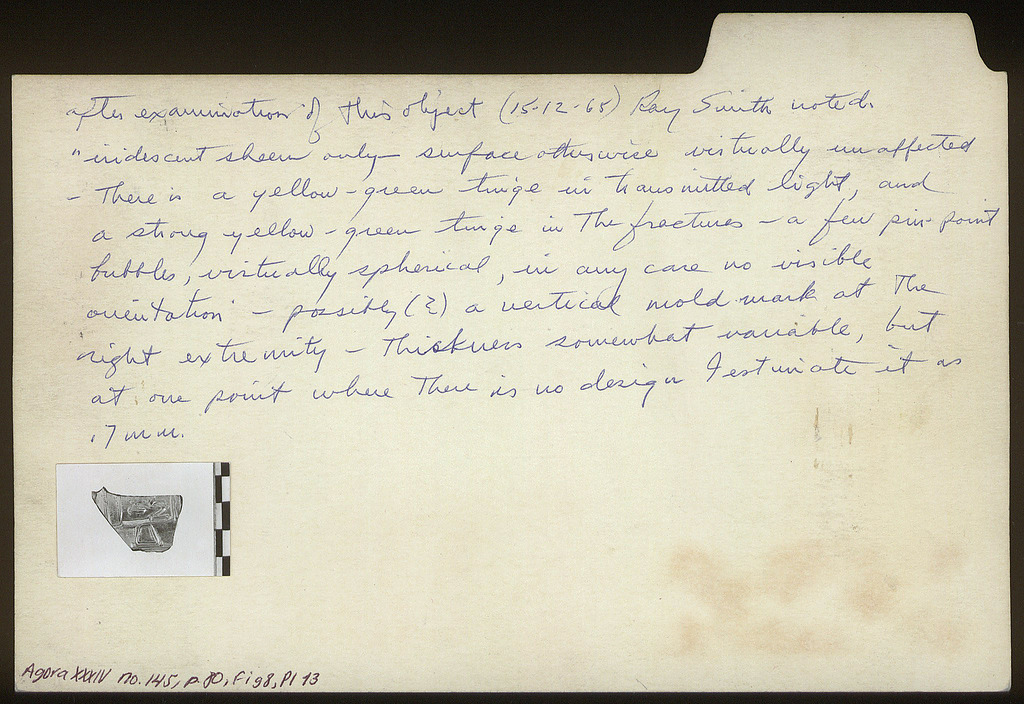 after examination of this object (15-12-65) Ray Smith noted:
"iridescent sheen only - surface otherwise virtually unaffected
- There is a yellow-green tinge in transmitted light, and
a strong yellow-green tinge in the fractures - a few pin-point
bubbles, virtually spherical, in any case no visible
orientation - possibly (?) a vertical mold mark at the
right extremity - Thickness somewhat variable, but
at one point where there is no design I estimate it as
.7 mm.
Agora XXXIV no. 145, p. 80, Fig 8, Pl 13